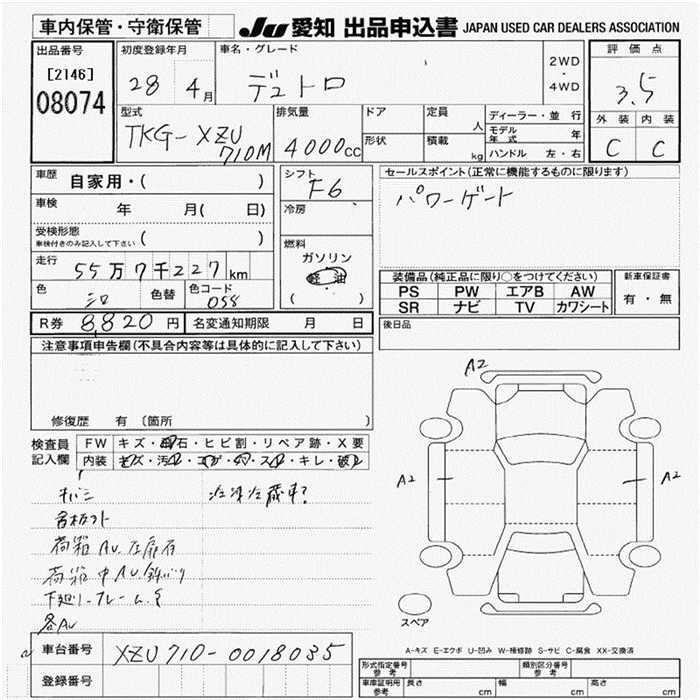 車内保管・守衛保管
JU 愛知 出品申込書 JAPAN USED CAR DEALERS ASSOCIATION
出品番号
[2146]
08074
初度登録年月
28 4月
車名・グレード
デュトロ
2WD
・
4WD
評価点
3.5
外装 内装
C C
型式
TKG-XZU
710M
排気量
4000cc
ドア
形状
定員
人
積載
kg
ディーラー・並行
モデル
年式
年
ハンドル 左・右
車歴 自家用・( )
車検 年 月( 日)
受検形態
車検付きのみ記入して下さい ( )
走行 55万7千227km
色
シロ
色替
色コード
058
シフト
F6
冷房
燃料
ガソリン
軽油
( )
セールスポイント(正常に機能するものに限ります)
パワーゲート
装備品(純正品に限り○をつけてください)
PS PW エアB AW
SR ナビ TV カワシート
新車保証書
有・無
後日品
R券 8,820円 名変通知期限 月 日
注意事項申告欄(不具合内容等は具体的に記入して下さい)
修復歴 有 〔箇所 〕
検査員
記入欄
FW キズ・飛石・ヒビ割・リペア跡・X要
内装 キズ・汚レ・コゲ・穴・スレ・キレ・破レ
キバミ
荷箱AU.
荷箱中AU.
下廻り-フレーム.
各AU
A2
A2
A2
スペア
A-キズ E-エクボ U-凹み W-補修跡 S-サビ C-腐食 XX-交換済
車台番号 XZU710-0018035
登録番号
形式指定番号
参考
類別区分番号
参考
車庫証明用
参考
長さ cm 幅 cm 高さ cm